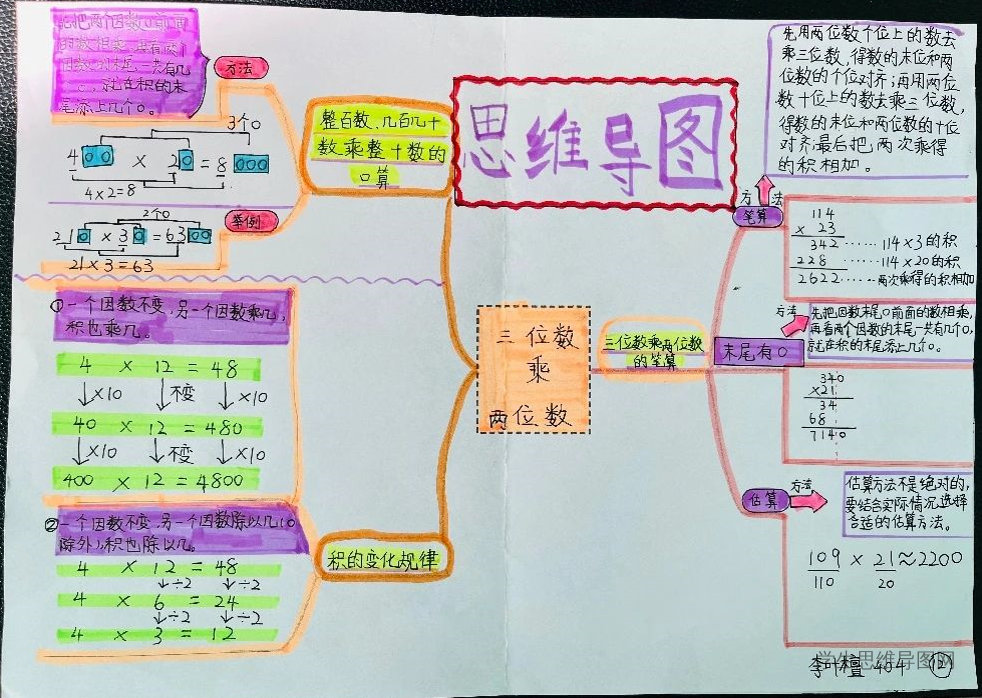 思维导图
三位数
乘
两位数
整百数、几百几十
数乘整十数的
口算
方法
先把两个因数0前面
的数相乘,再看两个
因数的末尾一共有几
个0,就在积的末
尾添上几个0。
3个0
400 × 20 = 8000
4×2=8
举例
2个0
210 × 30 = 6300
21×3=63
积的变化规律
①一个因数不变,另一个因数乘几,
积也乘几。
4 × 12 = 48
↓×10 ↓不变 ↓×10
40 × 12 = 480
↓×10 ↓不变 ↓×10
400 × 12 = 4800
②一个因数不变,另一个因数除以几(0
除外),积也除以几。
4 × 12 = 48
↓÷2 ↓÷2
4 × 6 = 24
↓÷2 ↓÷2
4 × 3 = 12
三位数乘两位数
的笔算
笔算
方法
先用两位数个位上的数去
乘三位数,得数的末位和两
位数的个位对齐;再用两位
数十位上的数去乘三位数,
得数的末位和两位数的十位
对齐;最后把,两次乘得
的积相加。
114
× 23
342 ……114×3的积
228 ……114×20的积
2622 ……两次乘得的积相加
末尾有0
方法
先把因数末尾0前面的数相乘,
再看两个因数的末尾一共有几个0,
就在积的末尾添上几个0。
340
×21
34
68
7140
估算
方法
估算方法不是绝对的,
要结合实际情况选择
合适的估算方法。
109 × 21≈2200
110 20
李叶檀 404 ⑫
学生思维导图网